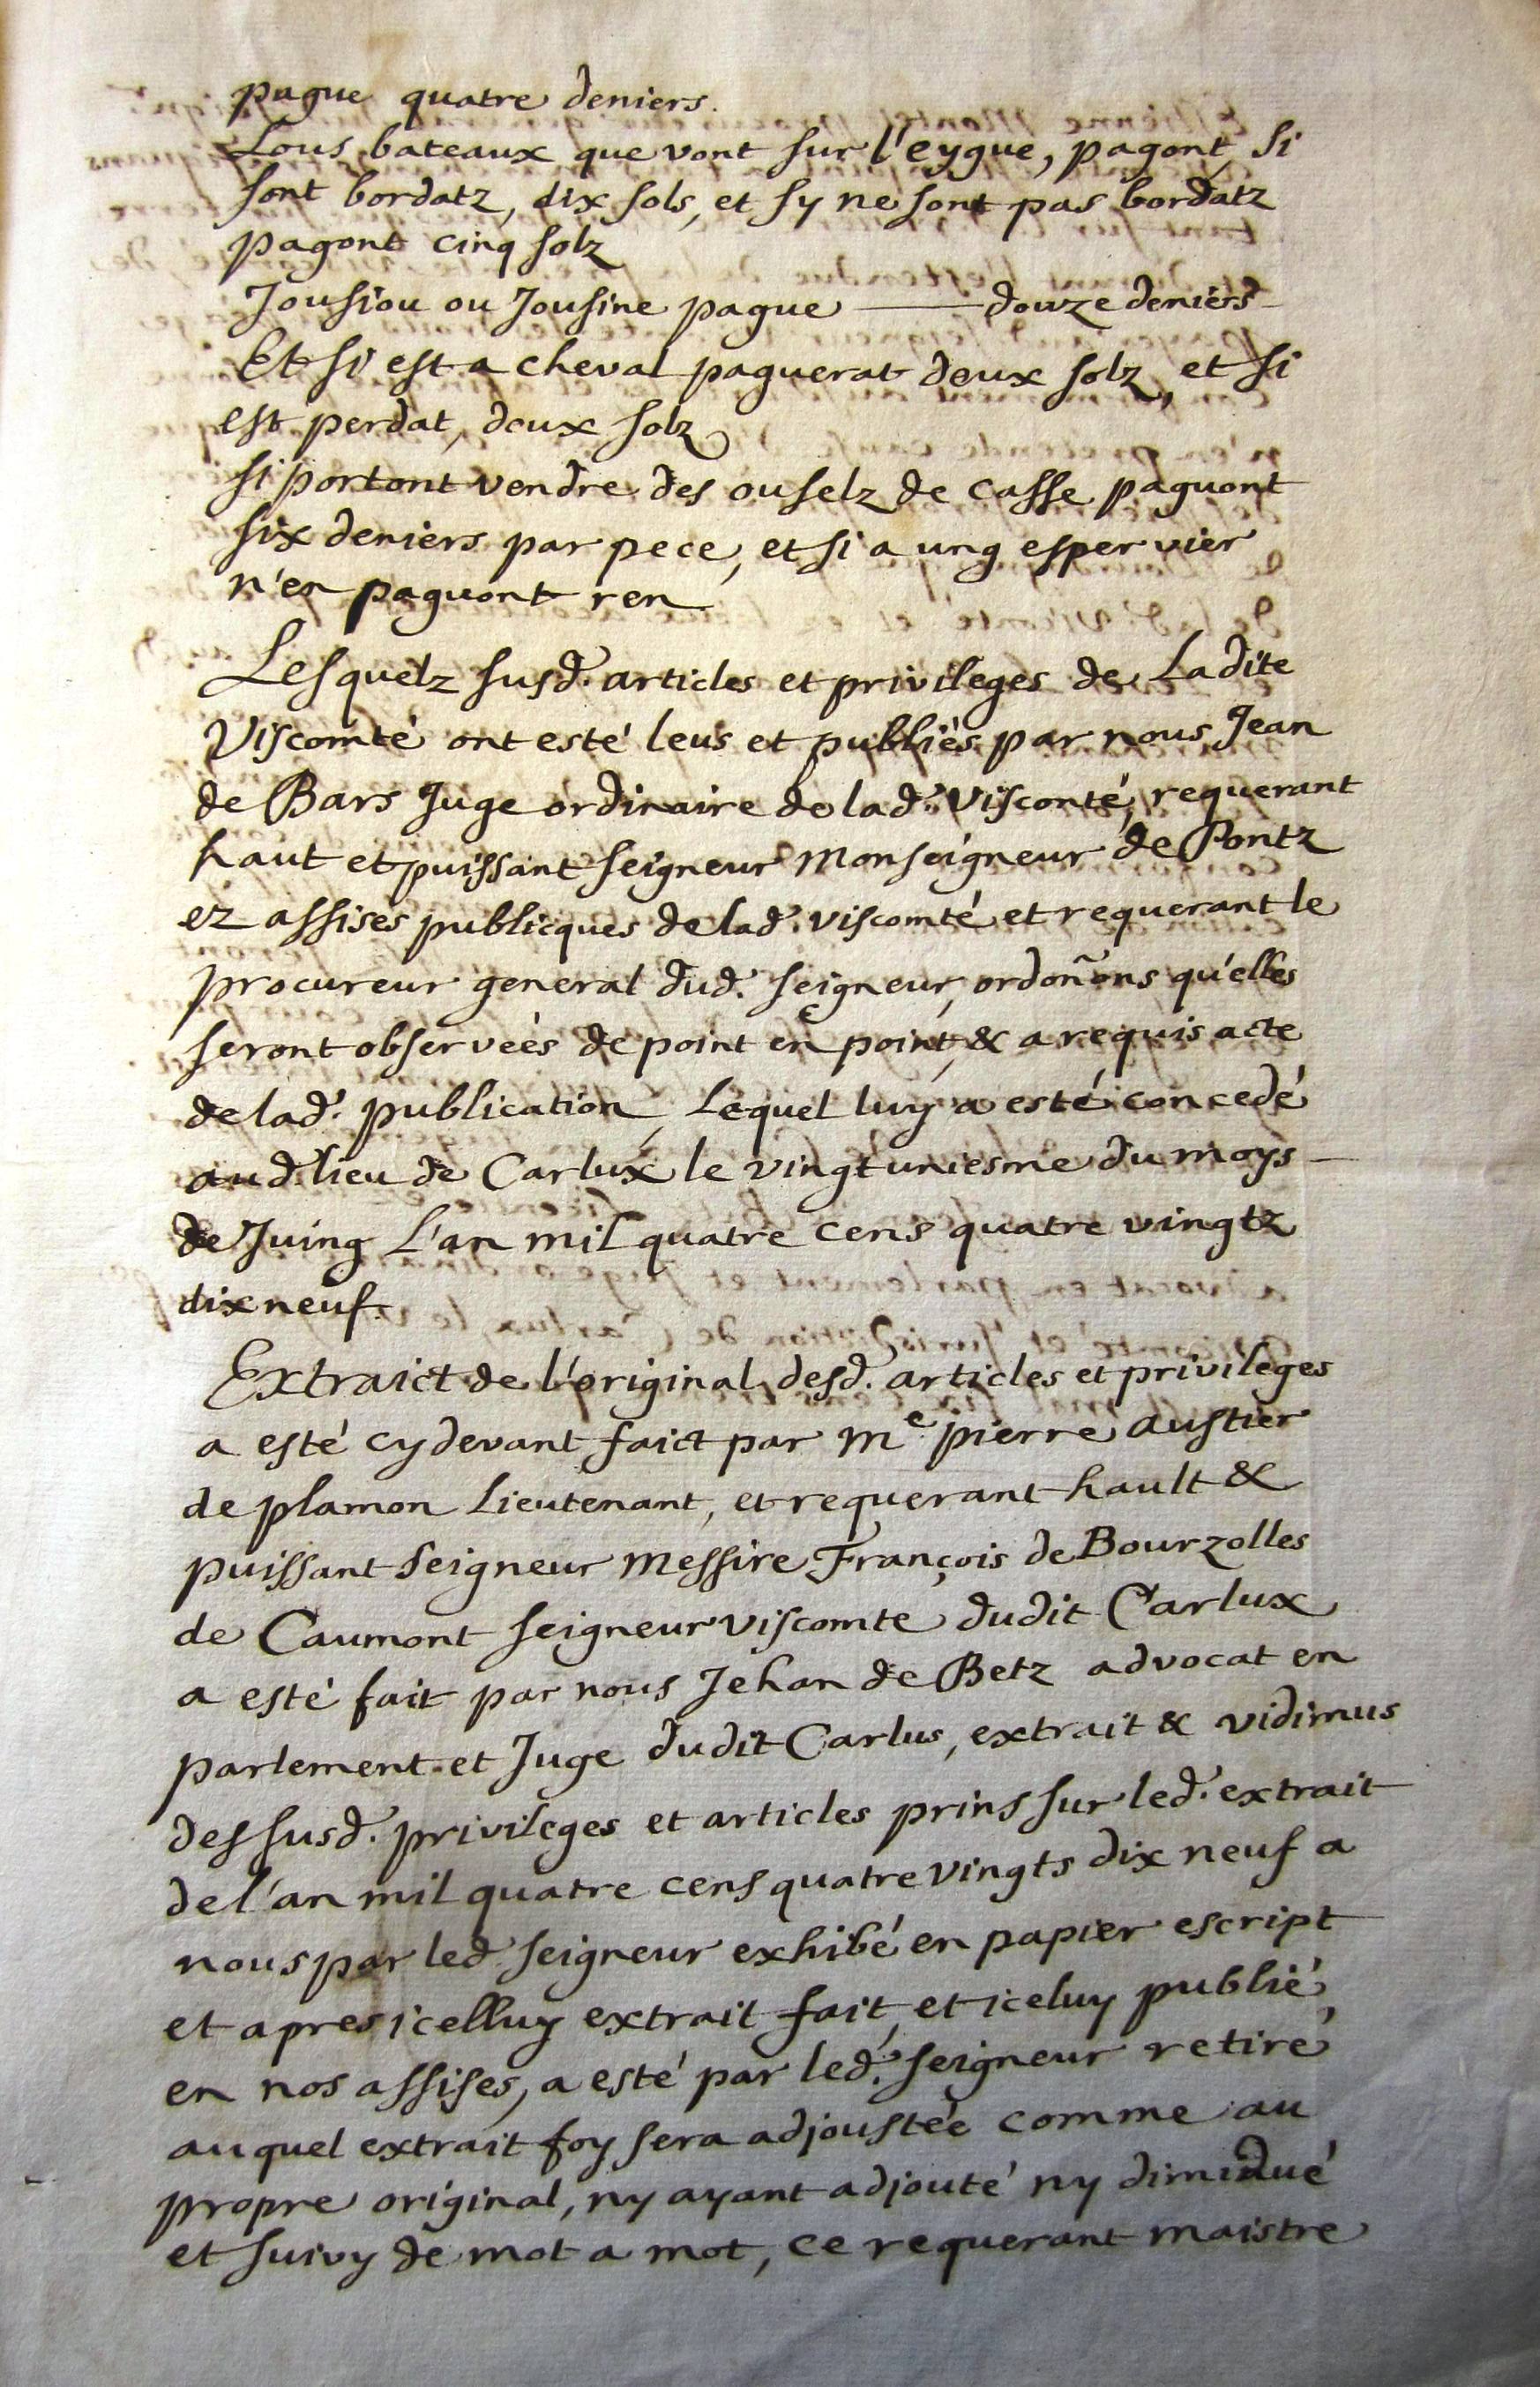 pague quatre deniers.
Lous bateaux que vont sur l'eygue, pagont si
sont bordatz, dix sols, et sy ne sont pas bordatz
pagont cinq solz
Jousiou ou Jousine pague —— douze deniers
Et si est a cheval paguerat deux solz, et si
est perdat, deux solz
si portont vendre des ouselz de casse paguont
six deniers par pece, et si a ung espervier
n'en paguont ren
Lesquelz susd. articles et privileges de Ladite
Viscomté ont esté leus et publiés par nous Jean
de Bars Juge ordinaire de lad. Visconté, requerant
haut et puissant seigneur Monseigneur de Pontz
ez assises publicques de lad. viscomté et requerant le
procureur general dud. seigneur, ordoñons qu'elles
seront observeés de point en point, & a requis acte
de lad. publication, Lequel luy a esté concedé
aud. lieu de Carlux le vingt uniesme du moys
de Juing L'an mil quatre cens quatre vingtz
dix neuf.
Extraict de l'original desd. articles et privileges
a esté cy devant faict par Me pierre austier
de plamon Lieutenant, et requerant hault &
puissant seigneur Messire François de Bourzolles
de Caumont seigneur viscomte dudit Carlux
a esté fait par nous Jehan de Betz advocat en
parlement et Juge dudit Carlus, extrait & vidimus
des susd. privileges et articles prins sur led. extrait
de l'an mil quatre cens quatre vingts dix neuf a
nous par led. seigneur exhibé en papier escript
et apres icelluy extrait fait, et iceluy publié
en nos assises, a esté par led. seigneur retiré
auquel extrait foy sera adjoustée comme au
propre original, ny ayant adjouté ny diminué
et suivy de mot a mot, ce requerant maistre